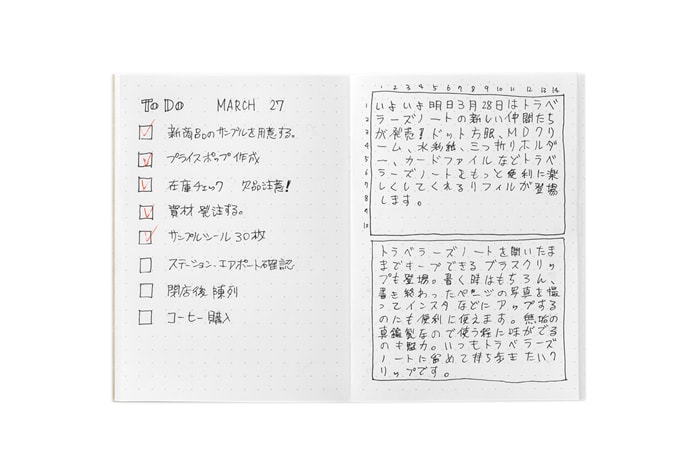 To Do MARCH 27
新商品のサンプルを用意する。
プライスポップ作成
在庫チェック 欠品注意!
資材発注する。
サンプルシール 30枚
ステーション、エアポート確認
閉店後 陳列
コーヒー購入
1 2 3 4 5 6 7 8 9 10 11 12 13 14
1 いよいよ明日3月28日はトラベ
2 ラーズノートの新しい仲間たち
3 が発売!ドット方眼、MDクリ
4 ーム、水彩紙、三つ折りホルダ
5 ー、カードファイルなどトラベ
6 ラーズノートをもっと便利に楽
7 しくしてくれるリフィルが登場
8 します。
9
10
トラベラーズノートを開いたま
までキープできるブラスクリッ
プも登場。書く時はもちろん、
書き終わったページの写真を撮
ってインスタなどにアップする
のにも便利に使えます。無垢の
真鍮製なので使う程に味がでる
のも魅力。いつもトラベラーズ
ノートに留めて持ち歩きたいク
リップです。